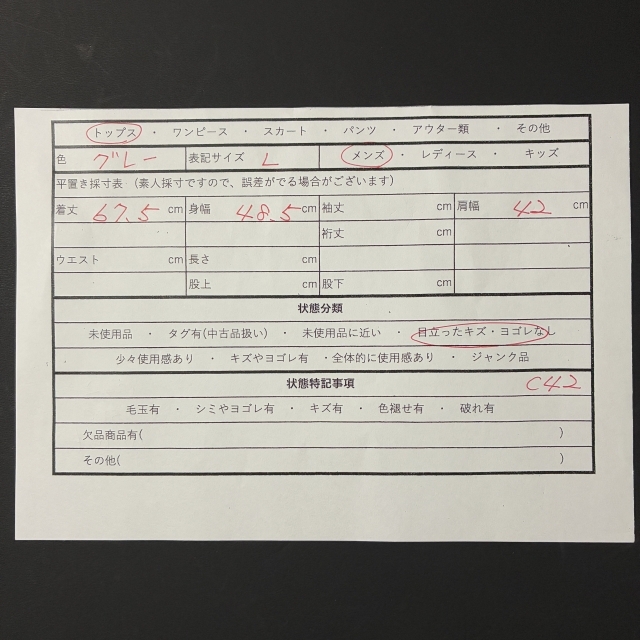 トップス ・ ワンピース ・ スカート ・ パンツ ・ アウター類 ・ その他
色 グレー 表記サイズ L メンズ ・ レディース ・ キッズ
平置き採寸表 (素人採寸ですので、誤差がでる場合がございます)
着丈 67.5 cm 身幅 48.5 cm 袖丈 cm 肩幅 42 cm
裄丈 cm
ウエスト cm 長さ cm
股上 cm 股下 cm
状態分類
未使用品 ・ タグ有(中古品扱い) ・ 未使用品に近い ・ 目立ったキズ・ヨゴレなし
少々使用感あり ・ キズやヨゴレ有 ・全体的に使用感あり ・ ジャンク品
状態特記事項 C42
毛玉有 ・ シミやヨゴレ有 ・ キズ有 ・ 色褪せ有 ・ 破れ有
欠品商品有( )
その他( )